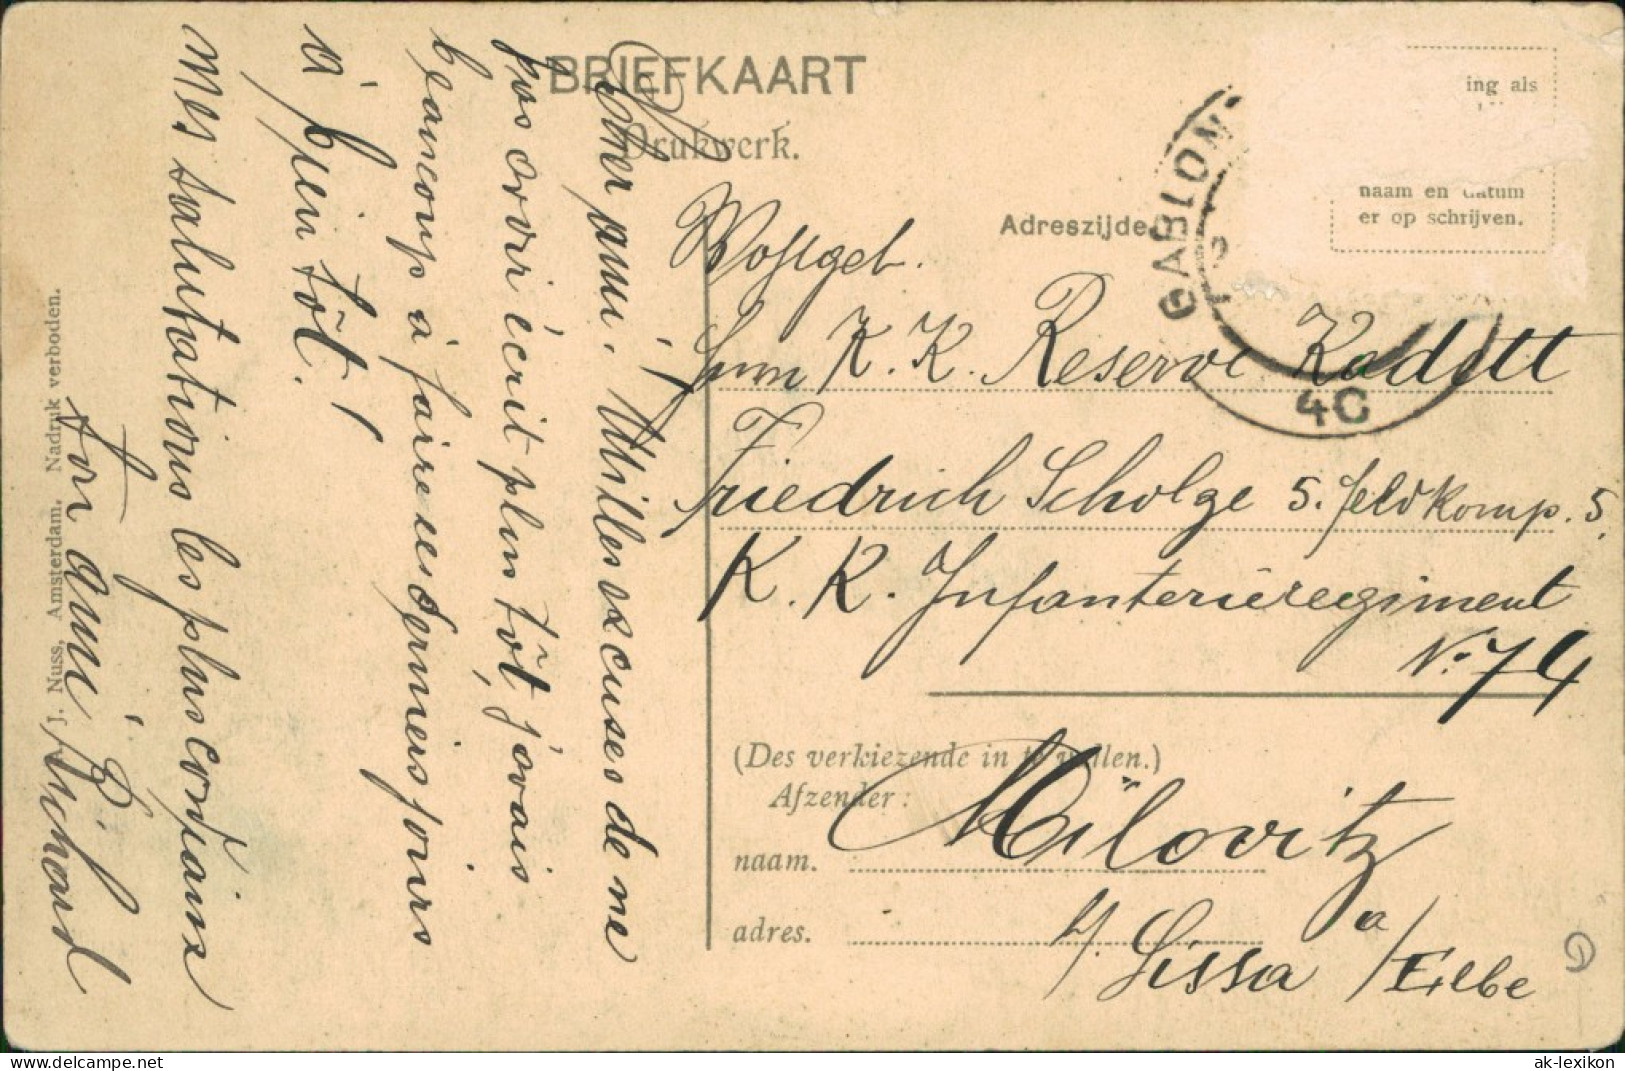 BRIEFKAART
Drukwerk.
Adreszijde
ing als
naam en datum
er op schrijven.
GABLON
4C
Wohlgeb.
K. K. Reserve Kadett
Friedrich Scholze 5. Feldkomp. 5.
K. K. Infanterieregiment
No. 74
(Des verkiezende in te vullen.)
Afzender:
naam.
adres.
Milovitz
Lissa a/Elbe
Cher ami! Milles excuses de ne
pas avoir écrit plus tôt, j'avais
beaucoup à faire ces derniers jours
à bien tôt!
Mes salutations les plus
Ton ami Richard
J. Nuss, Amsterdam. Nadruk verboden.
www.delcampe.net
ak-lexikon